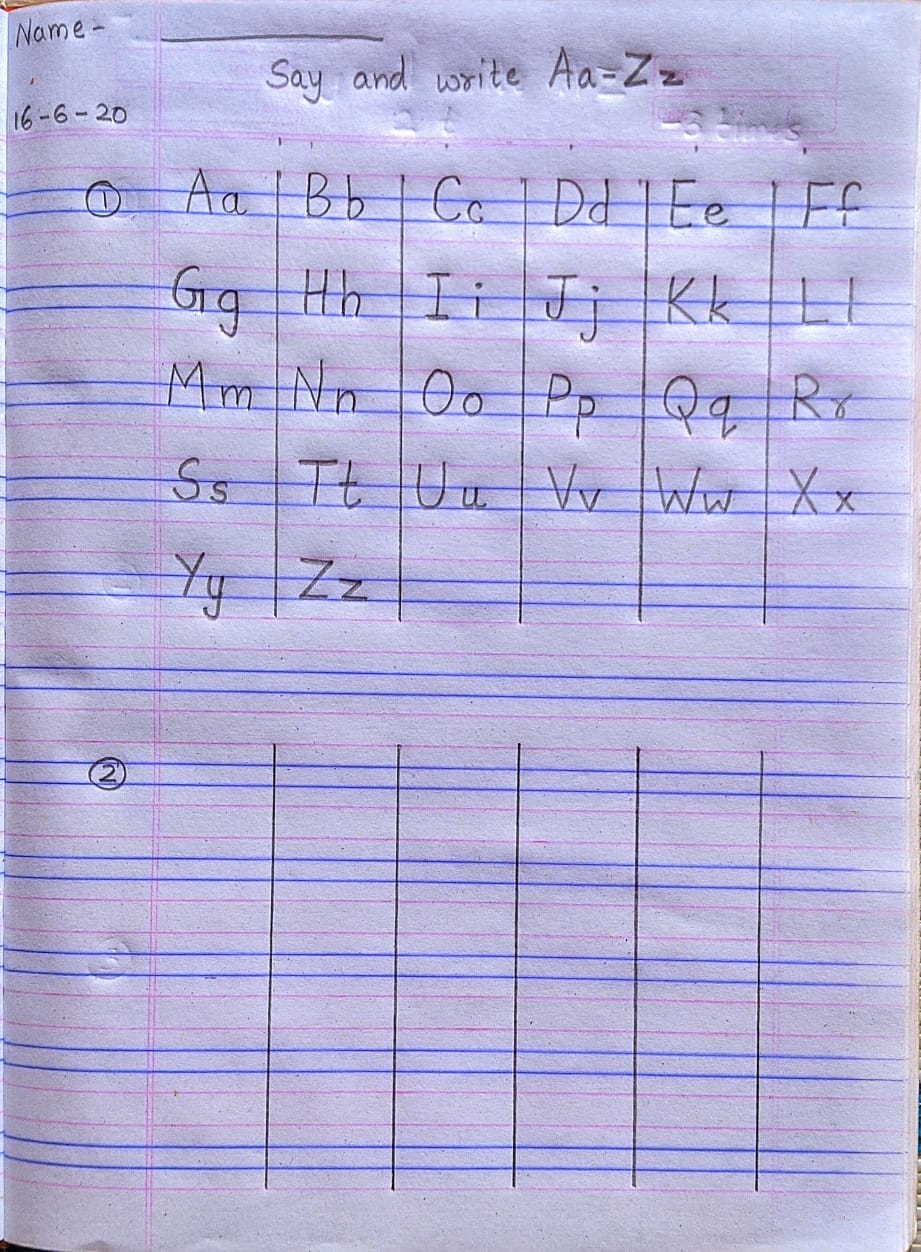 Name- ____________
Say and write Aa-Zz
16-6-20
① Aa Bb Cc Dd Ee Ff
Gg Hh Ii Jj Kk Ll
Mm Nn Oo Pp Qq Rr
Ss Tt Uu Vv Ww Xx
Yy Zz
②